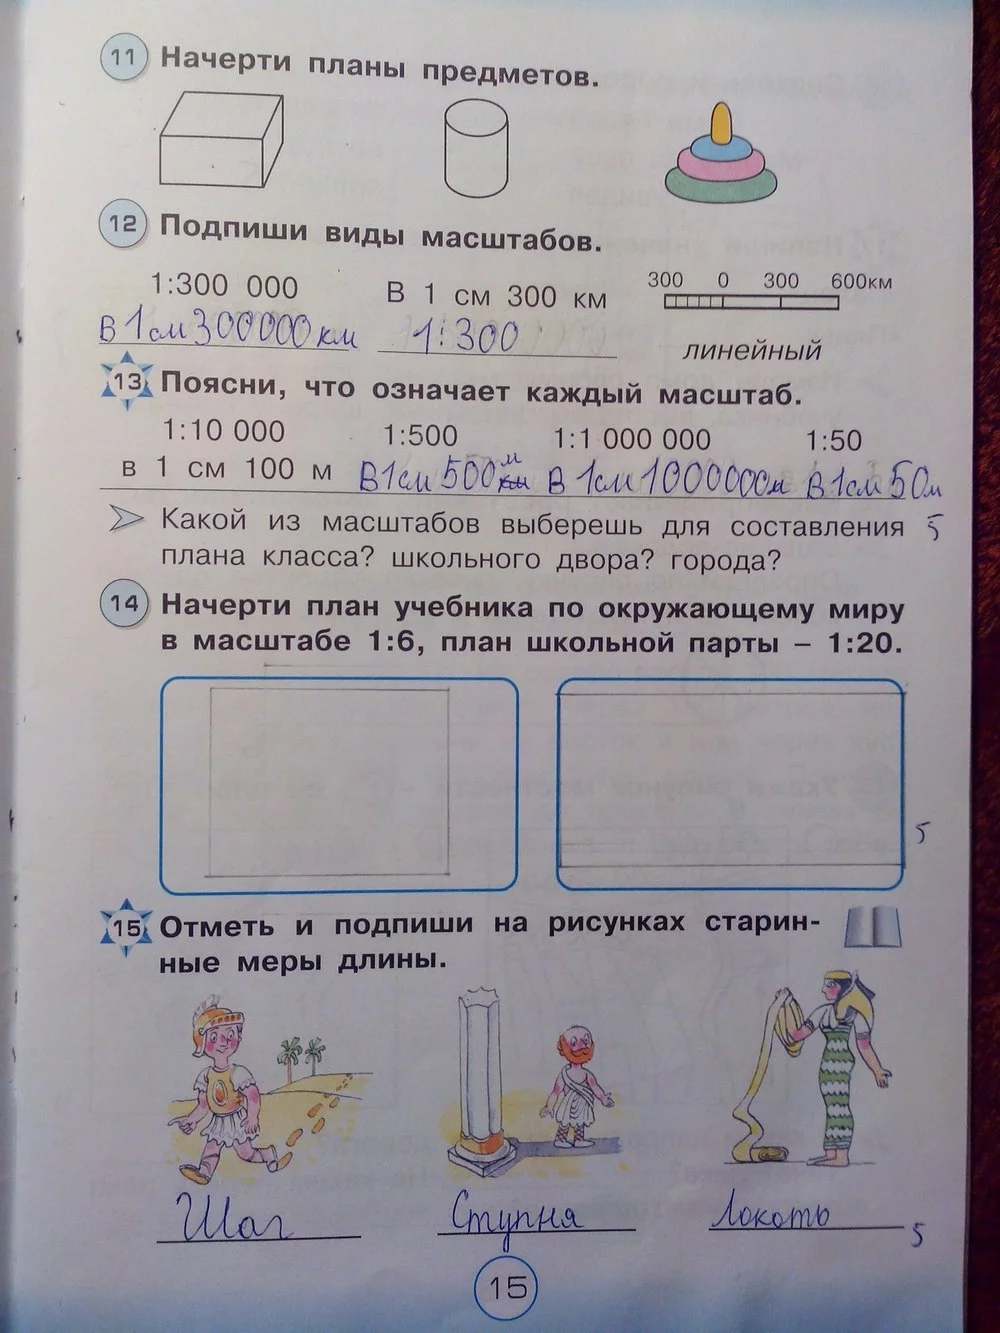 11 Начерти планы предметов.
12 Подпиши виды масштабов.
1:300 000 В 1 см 300 км 300 0 300 600км
В 1 см 300 000 км 1:300
линейный
13 Поясни, что означает каждый масштаб.
1:10 000 1:500 1:1 000 000 1:50
в 1 см 100 м В 1 см 500 км м В 1 см 1000000м В 1 см 50м
Какой из масштабов выберешь для составления 5
плана класса? школьного двора? города?
14 Начерти план учебника по окружающему миру
в масштабе 1:6, план школьной парты – 1:20.
5
15 Отметь и подпиши на рисунках старин-
ные меры длины.
Шаг Ступня Локоть 5
15